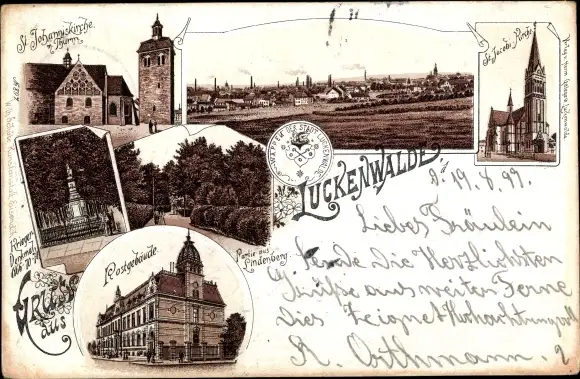 St. Johanniskirche
u. Thurm.
St. Jacobi Kirche
WAPPEN DER STADT LUCKENWALDE
LUCKENWALDE
Krieger
Denkmal
Partie aus
Lindenberg.
Postgebäude.
GRUSS
aus
d. 19.8.99.
Liebes Fräulein
sende die Herzlichsten
Grüße aus weiter Ferne
Dies zeignet Hochachtungsvoll
R. Orthmann.